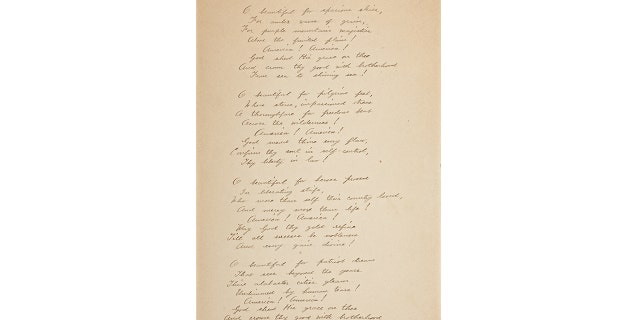 O beautiful for spacious skies,
For amber waves of grain,
For purple mountain majesties
Above the fruited plain!
America! America!
God shed His grace on thee
And crown thy good with brotherhood
From sea to shining sea!
O beautiful for pilgrim feet,
Whose stern, impassioned stress
A thoroughfare for freedom beat
Across the wilderness!
America! America!
God mend thine every flaw,
Confirm thy soul in self-control,
Thy liberty in law!
O beautiful for heroes proved
In liberating strife,
Who more than self their country loved,
And mercy more than life!
America! America!
May God thy gold refine
Till all success be nobleness
And every gain divine!
O beautiful for patriot dream
That sees beyond the years
Thine alabaster cities gleam
Undimmed by human tears!
America! America!
God shed His grace on thee
And crown thy good with brotherhood